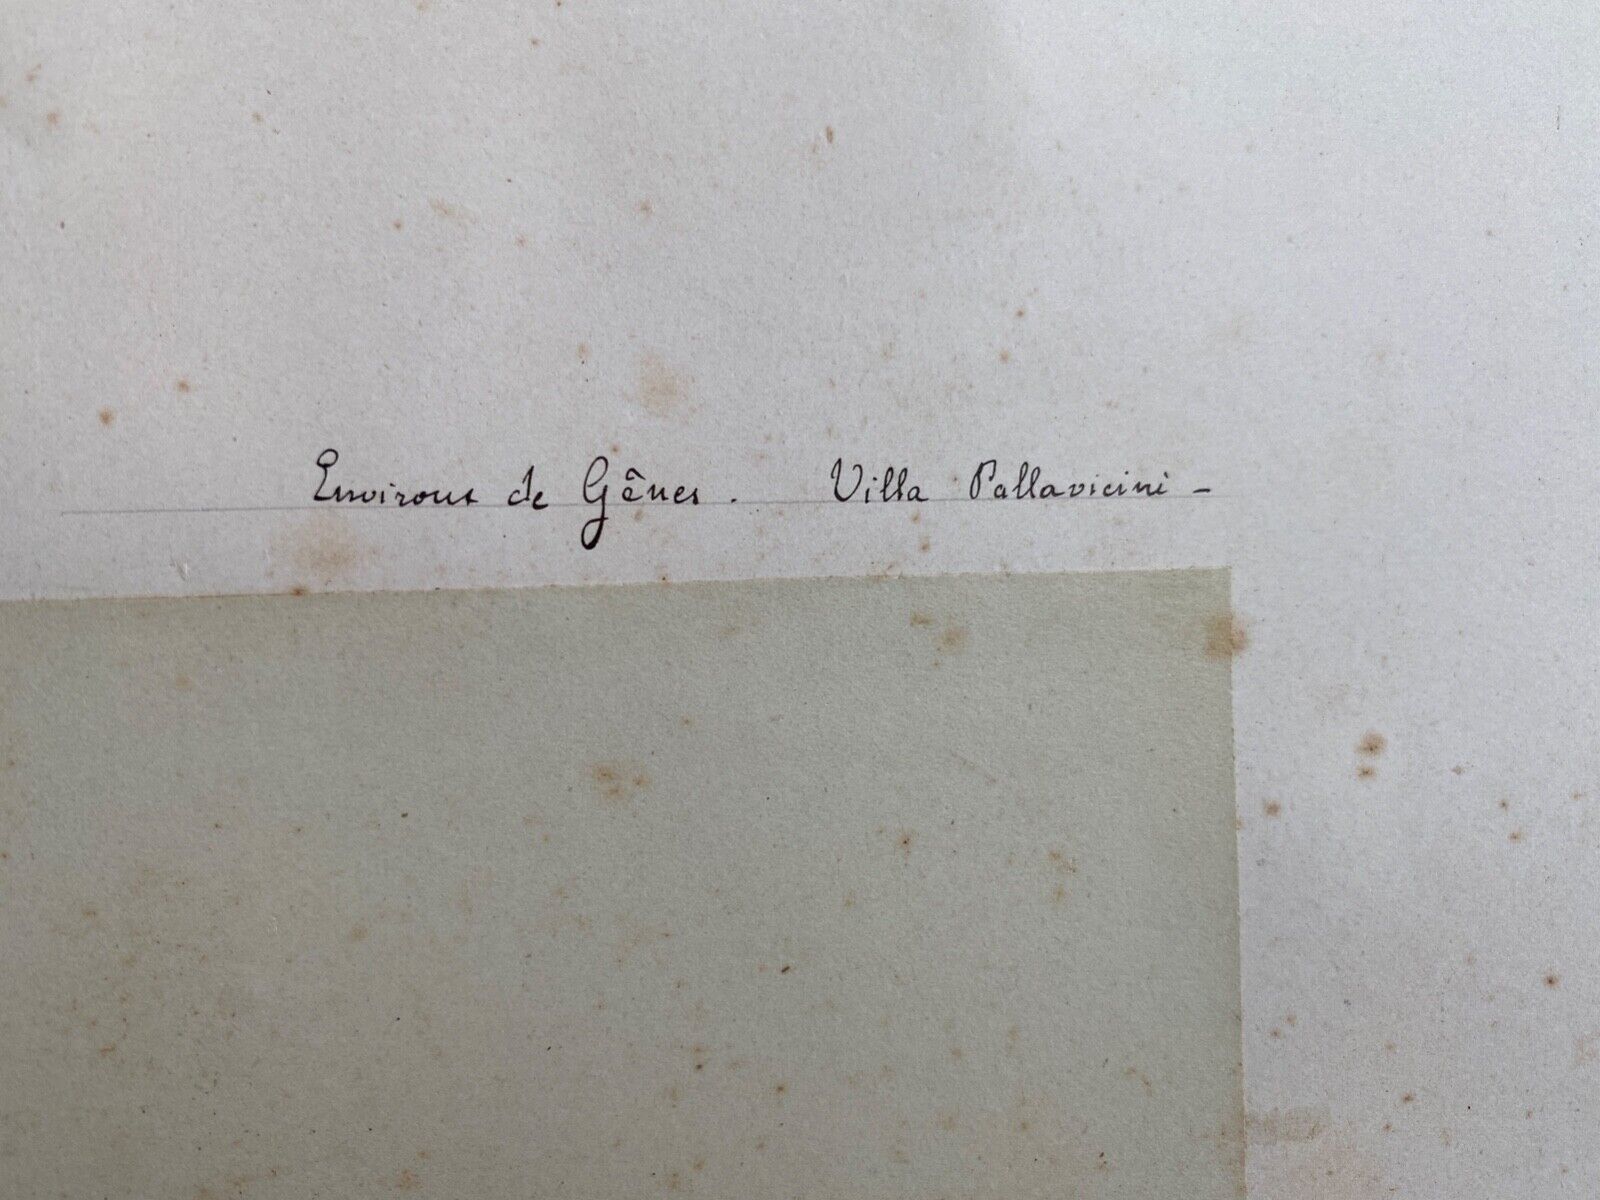 Environs de Gênes. Villa Pallavicini -